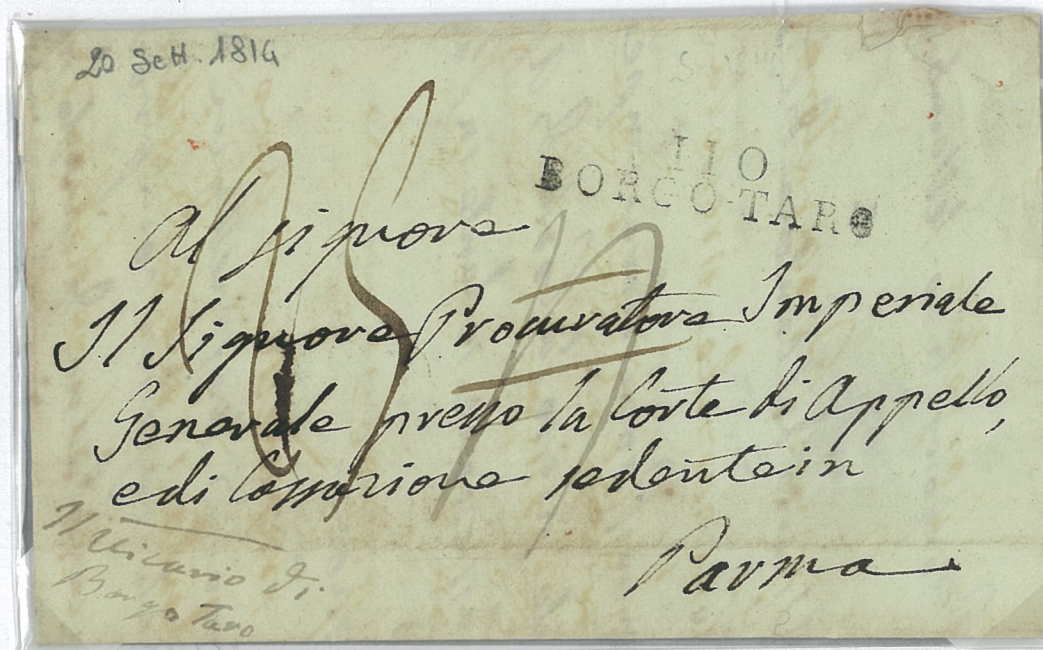 20 Sett. 1814
110
BORGO-TARO
Al signore
Il Signore Procuratore Imperiale
Generale presso la Corte di Appello,
e di Cassazione sedente in
Parma
Il Vicario di
Borgo Taro